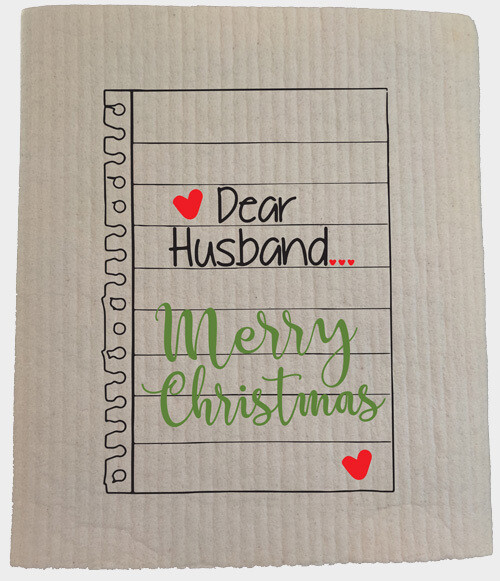 Dear
Husband...
Merry
Christmas